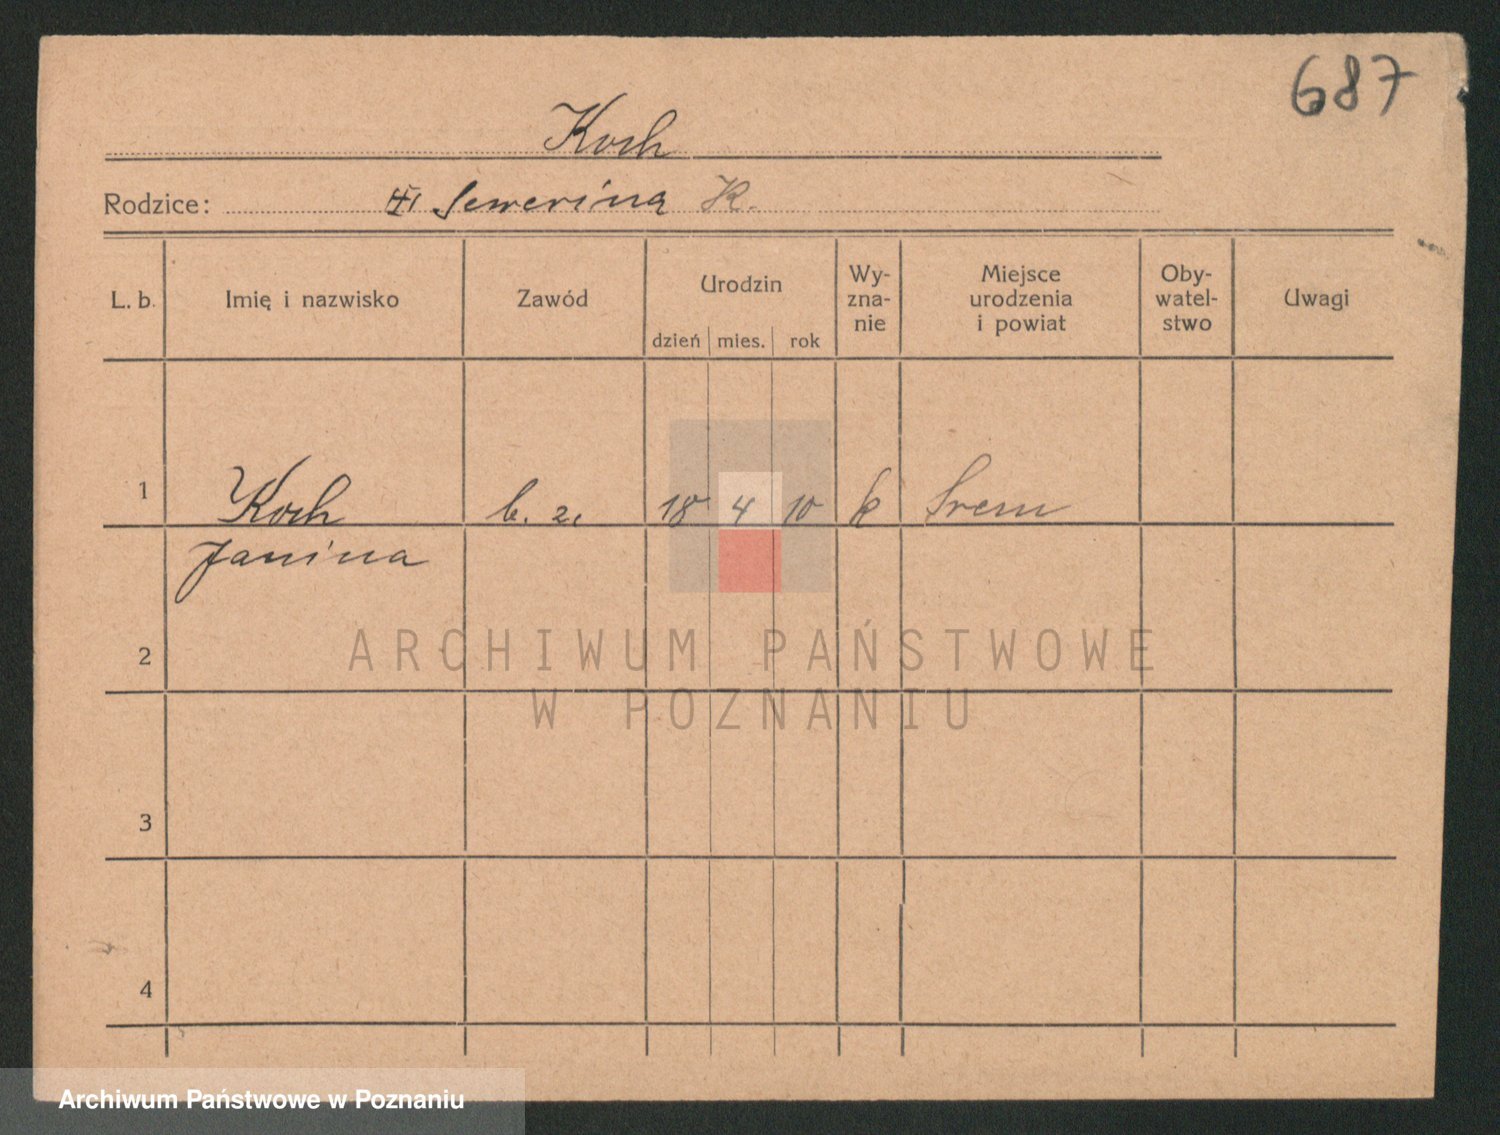 687
Koch
Rodzice: Sewerina K.
L. b. Imię i nazwisko Zawód Urodzin dzień mies. rok Wy-zna-nie Miejsce urodzenia i powiat Oby-watel-stwo Uwagi
1 Koch b. z. 18 4 10 k Srem
Janina
2
ARCHIWUM PAŃSTWOWE
W POZNANIU
3
4
Archiwum Państwowe w Poznaniu